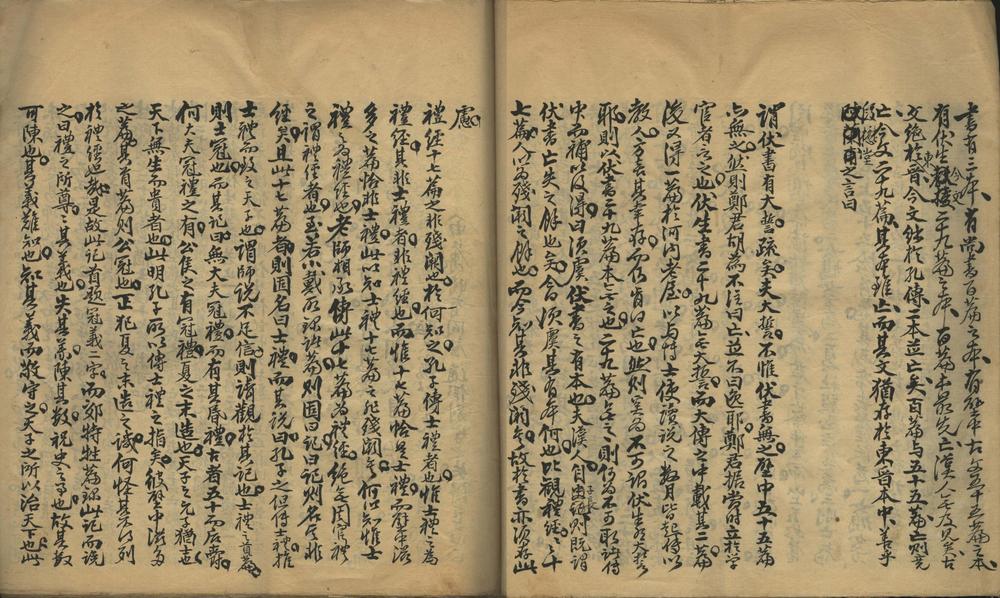 書有三本有尚書百篇之本有孔本古文五十五篇之本
有伏生二十九篇之本百篇本最先亡漢人亡及見矣古
文絶於晉今文絶於孔傳二本並亡矣百篇与五十五篇亡則竟
亡今文二十九篇其本雖亡而其文猶存於東晉本中善乎
之言曰
謂伏書有大誓疏矣夫大誓不惟伏書無之壁中五十五篇
亦無之然則鄭君胡為不注曰亡並不曰逸耶鄭君据當時立於學
官者言之也伏生書二十九篇亡大誓而大傳之中載其二篇
後又得一篇於河内老屋以与博士使讀說之數月皆起傳以
教人
耶則以伏書二十九篇本言之也二十九篇
中而補以後得曰須臾伏書之有本也夫漢人
伏書亡失之餘也今須臾其有本何也比觀禮經之十
七篇人以為殘闕之餘也而今知其非殘闕矣故於書亦須存此
慮
禮經十七篇之非殘闕也於何知之孔子傳士禮者也惟士禮之為
禮經其非士禮者非禮經也而惟十七篇恰是士禮而
多之篇恰非士禮此以知士禮十七篇之非殘闕矣何以知惟士
禮之為禮經也老師相承傳此十七篇為禮經絶無周官禮
之謂禮經者也至若小戴所録諸篇則固曰記曰記則名之非
經矣且此十七篇者則固名曰士禮而其說曰孔子之但傳士禮推
士禮而致之天子也謂師說不足信則請觀於其記也士禮之首篇
則士冠也而其記曰無大夫冠禮而有其昏禮古者五十而后爵
何大夫冠禮之有公侯之有冠禮夏之末造也天子之元子猶士也
天下無生而貴者也此明孔子所以傳士禮之指矣彼壁中逸多
之篇其首篇則公冠也正犯夏之末造之譏何怪其不得列
於禮經也哉是故此記首題冠義二字而郊特牲篇録此記而說
之曰禮之所尊尊其義也失其義陳其數祝史之事也故其數
可陳也其義難知也知其義而敬守之天子之所以治天下也此